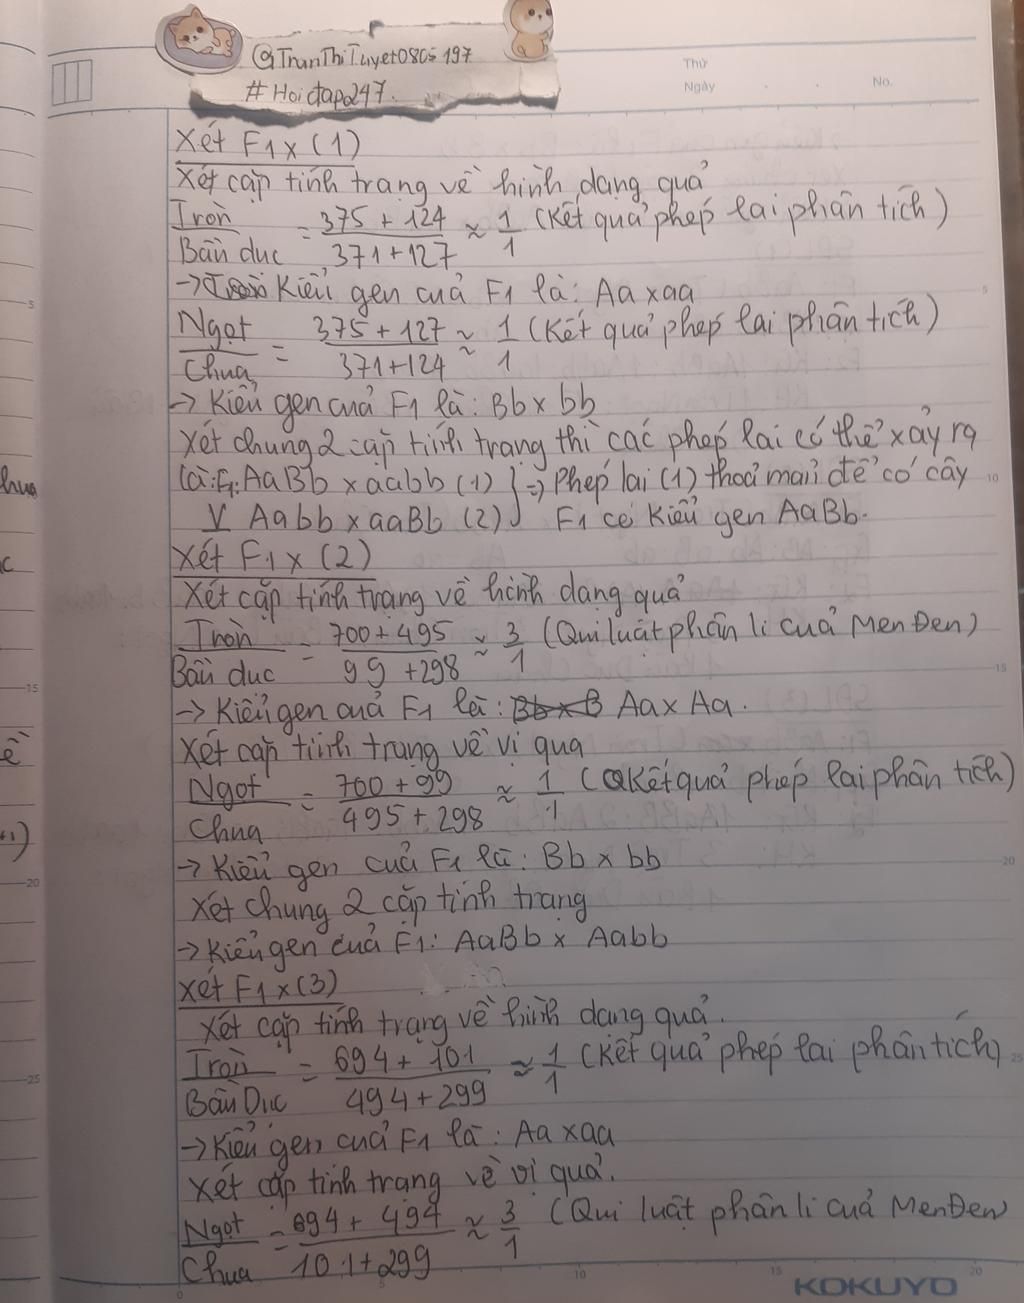 @TranThiTuyet0805197
#Hoidap247.
Thứ
Ngày
No.
Xét F1 x (1)
Xét cặp tính trạng về hình dạng quả
Tròn / Bầu dục = 375 + 124 / 371 + 127 ≈ 1/1 (Kết quả phép lai phân tích)
→ Kiểu gen cuả F1 là: Aa x aa
Ngọt / Chua = 375 + 127 / 371 + 124 ≈ 1/1 (Kết quả phép lai phân tích)
→ Kiểu gen cuả F1 là: Bb x bb
Xét chung 2 cặp tính trạng thì các phép lai có thể xảy ra
là: F1: AaBb x aabb (1) } => Phép lai (1) thoả mãn để có cây
V Aabb x aaBb (2) F1 có Kiểu gen AaBb.
Xét F1 x (2)
Xét cặp tính trạng về hình dạng quả
Tròn / Bầu dục = 700 + 495 / 99 + 298 ≈ 3/1 (Qui luật phân li cuả MenĐen)
→ Kiểu gen cuả F1 là: Bb x B Aa x Aa.
Xét cặp tính trạng về vị quả
Ngọt / Chua = 700 + 99 / 495 + 298 ≈ 1/1 (Kết quả phép lai phân tích)
→ Kiểu gen cuả F1 là: Bb x bb
Xét chung 2 cặp tính trạng
→ Kiểu gen cuả F1: AaBb x Aabb
Xét F1 x (3)
Xét cặp tính trạng về hình dạng quả.
Tròn / Bầu Dục = 694 + 101 / 494 + 299 ≈ 1/1 (Kết quả phép lai phân tích)
→ Kiểu gen cuả F1 là: Aa x aa
Xét cặp tính trạng về vị quả.
Ngọt / Chua = 694 + 494 / 101 + 299 ≈ 3/1 (Qui luật phân li cuả MenĐen
KOKUYO